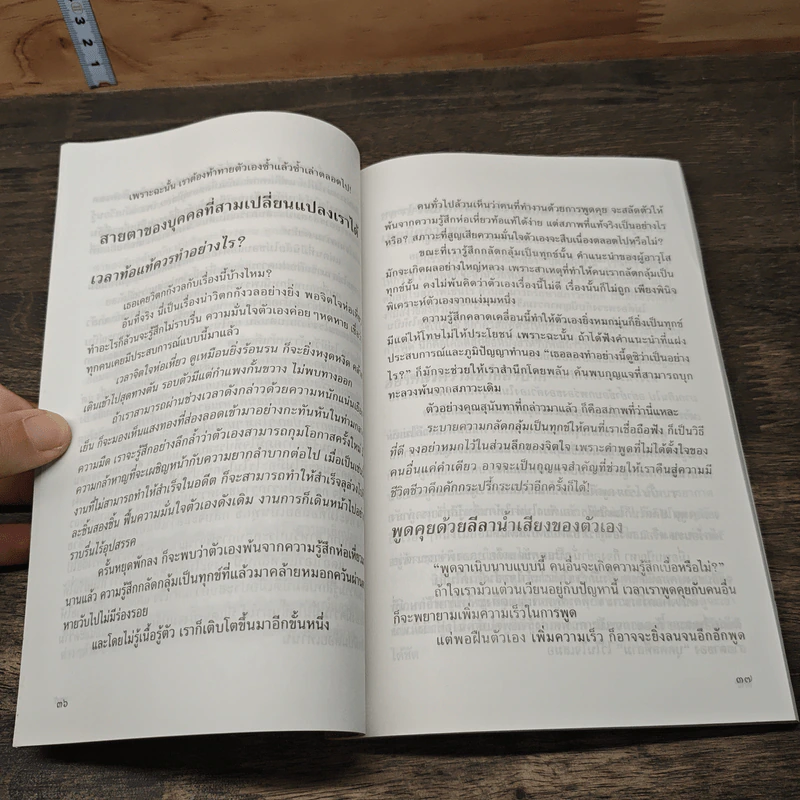 3
2
1
เพราะฉะนั้น เราต้องท้าทายตัวเองซ้ำแล้วซ้ำเล่าตลอดไป!
สายตาของบุคคลที่สามเปลี่ยนแปลงเราได้
เวลาท้อแท้ควรทำอย่างไร?
เธอเคยวิตกกังวลกับเรื่องนี้บ้างไหม?
อันที่จริง นี่เป็นเรื่องน่าวิตกกังวลอย่างยิ่ง พอจิตใจห่อเหี่ยว
ทำอะไรก็ล้วนจะรู้สึกไม่ราบรื่น ความมั่นใจตัวเองค่อยๆ หดหาย
ทุกคนเคยมีประสบการณ์แบบนี้มาแล้ว
เวลาจิตใจห่อเหี่ยว ดูเหมือนยิ่งร้อนรน ก็จะยิ่งหงุดหงิด
เดินเข้าไปสู่ทางตัน รอบตัวมีแต่กำแพงกั้นขวาง ไม่พบทางออก
ถ้าเราสามารถผ่านช่วงเวลาดังกล่าวด้วยความหนักแน่น
เย็น ก็จะมองเห็นแสงทองที่ส่องลอดเข้ามาอย่างกะทันหันในท่ามกลาง
ความมืด เราจะรู้สึกอย่างลึกล้ำว่าตัวเองสามารถกุมโอกาสครั้งใหม่
ความกล้าหาญที่จะเผชิญหน้ากับความยากลำบากต่อไป เมื่อเป็นเช่น
งานที่ไม่สามารถทำให้สำเร็จในอดีต ก็จะสามารถทำให้สำเร็จลุล่วง
ละชิ้นสองชิ้น ฟื้นความมั่นใจตัวเองดังเดิม งานการก็เดินหน้าไป
ราบรื่นไร้อุปสรรค
ครั้นหยุดพักลง ก็จะพบว่าตัวเองพ้นจากความรู้สึกห่อเหี่ยว
นานแล้ว ความรู้สึกกลัดกลุ้มเป็นทุกข์ที่แล้วมาคล้ายหมอกควันผ่าน
หายวับไปไม่มีร่องรอย
และโดยไม่รู้เนื้อรู้ตัว เราก็เติบโตขึ้นมาอีกขั้นหนึ่ง
๓๖
คนทั่วไปล้วนเห็นว่าคนที่ทำงานด้วยการพูดคุย จะสลัดตัวให้
พ้นจากความรู้สึกห่อเหี่ยวท้อแท้ได้ง่าย แต่สภาพที่แท้จริงเป็นอย่างไร
หรือ? สภาวะที่สูญเสียความมั่นใจตัวเองจะสืบเนื่องตลอดไปหรือไม่?
ขณะที่เรารู้สึกกลัดกลุ้มเป็นทุกข์นั้น คำแนะนำของผู้อาวุโส
มักจะเกิดผลอย่างใหญ่หลวง เพราะสาเหตุที่ทำให้คนเรากลัดกลุ้มเป็น
ทุกข์นั้น คงไม่พ้นคิดว่าตัวเองเรื่องนี้ไม่ดี เรื่องนั้นก็ไม่ถูก เพียงพินิจ
พิเคราะห์ตัวเองจากแง่มุมหนึ่ง
ความรู้สึกคลาดเคลื่อนนี้ทำให้ตัวเองยิ่งหมกมุ่นก็ยิ่งเป็นทุกข์
มีแต่ให้โทษไม่ให้ประโยชน์ เพราะฉะนั้น ถ้าได้ฟังคำแนะนำที่แฝง
ประสบการณ์และภูมิปัญญาทำนอง “เธอลองทำอย่างนี้ดูซิว่าเป็นอย่าง
ไร?” ก็มักจะช่วยให้เราสำนึกโดยพลัน ค้นพบกุญแจที่สามารถบุก
ทะลวงพ้นจากสภาวะเดิม
ตัวอย่างคุณสุนันทาที่กล่าวมาแล้ว ก็คือสภาพที่ว่านี่แหละ
ระบายความกลัดกลุ้มเป็นทุกข์ให้คนที่เราเชื่อถือฟัง ก็เป็นวิธี
ที่ดี จงอย่าหมกไว้ในส่วนลึกของจิตใจ เพราะคำพูดที่ไม่ได้ตั้งใจของ
คนอื่นแค่คำเดียว อาจจะเป็นกุญแจสำคัญที่ช่วยให้เราคืนสู่ความมี
ชีวิตชีวาคึกคักกระปรี้กระเปร่าอีกครั้งก็ได้!
พูดคุยด้วยลีลาน้ำเสียงของตัวเอง
“พูดจาเนิบนาบแบบนี้ คนอื่นจะเกิดความรู้สึกเบื่อหรือไม่?”
ถ้าใจเรามัวแต่วนเวียนอยู่กับปัญหานี้ เวลาเราพูดคุยกับคนอื่น
ก็จะพยายามเพิ่มความเร็วในการพูด
แต่พอฝืนตัวเอง เพิ่มความเร็ว ก็อาจจะยิ่งลนจนอึกอักพูด
๓๗